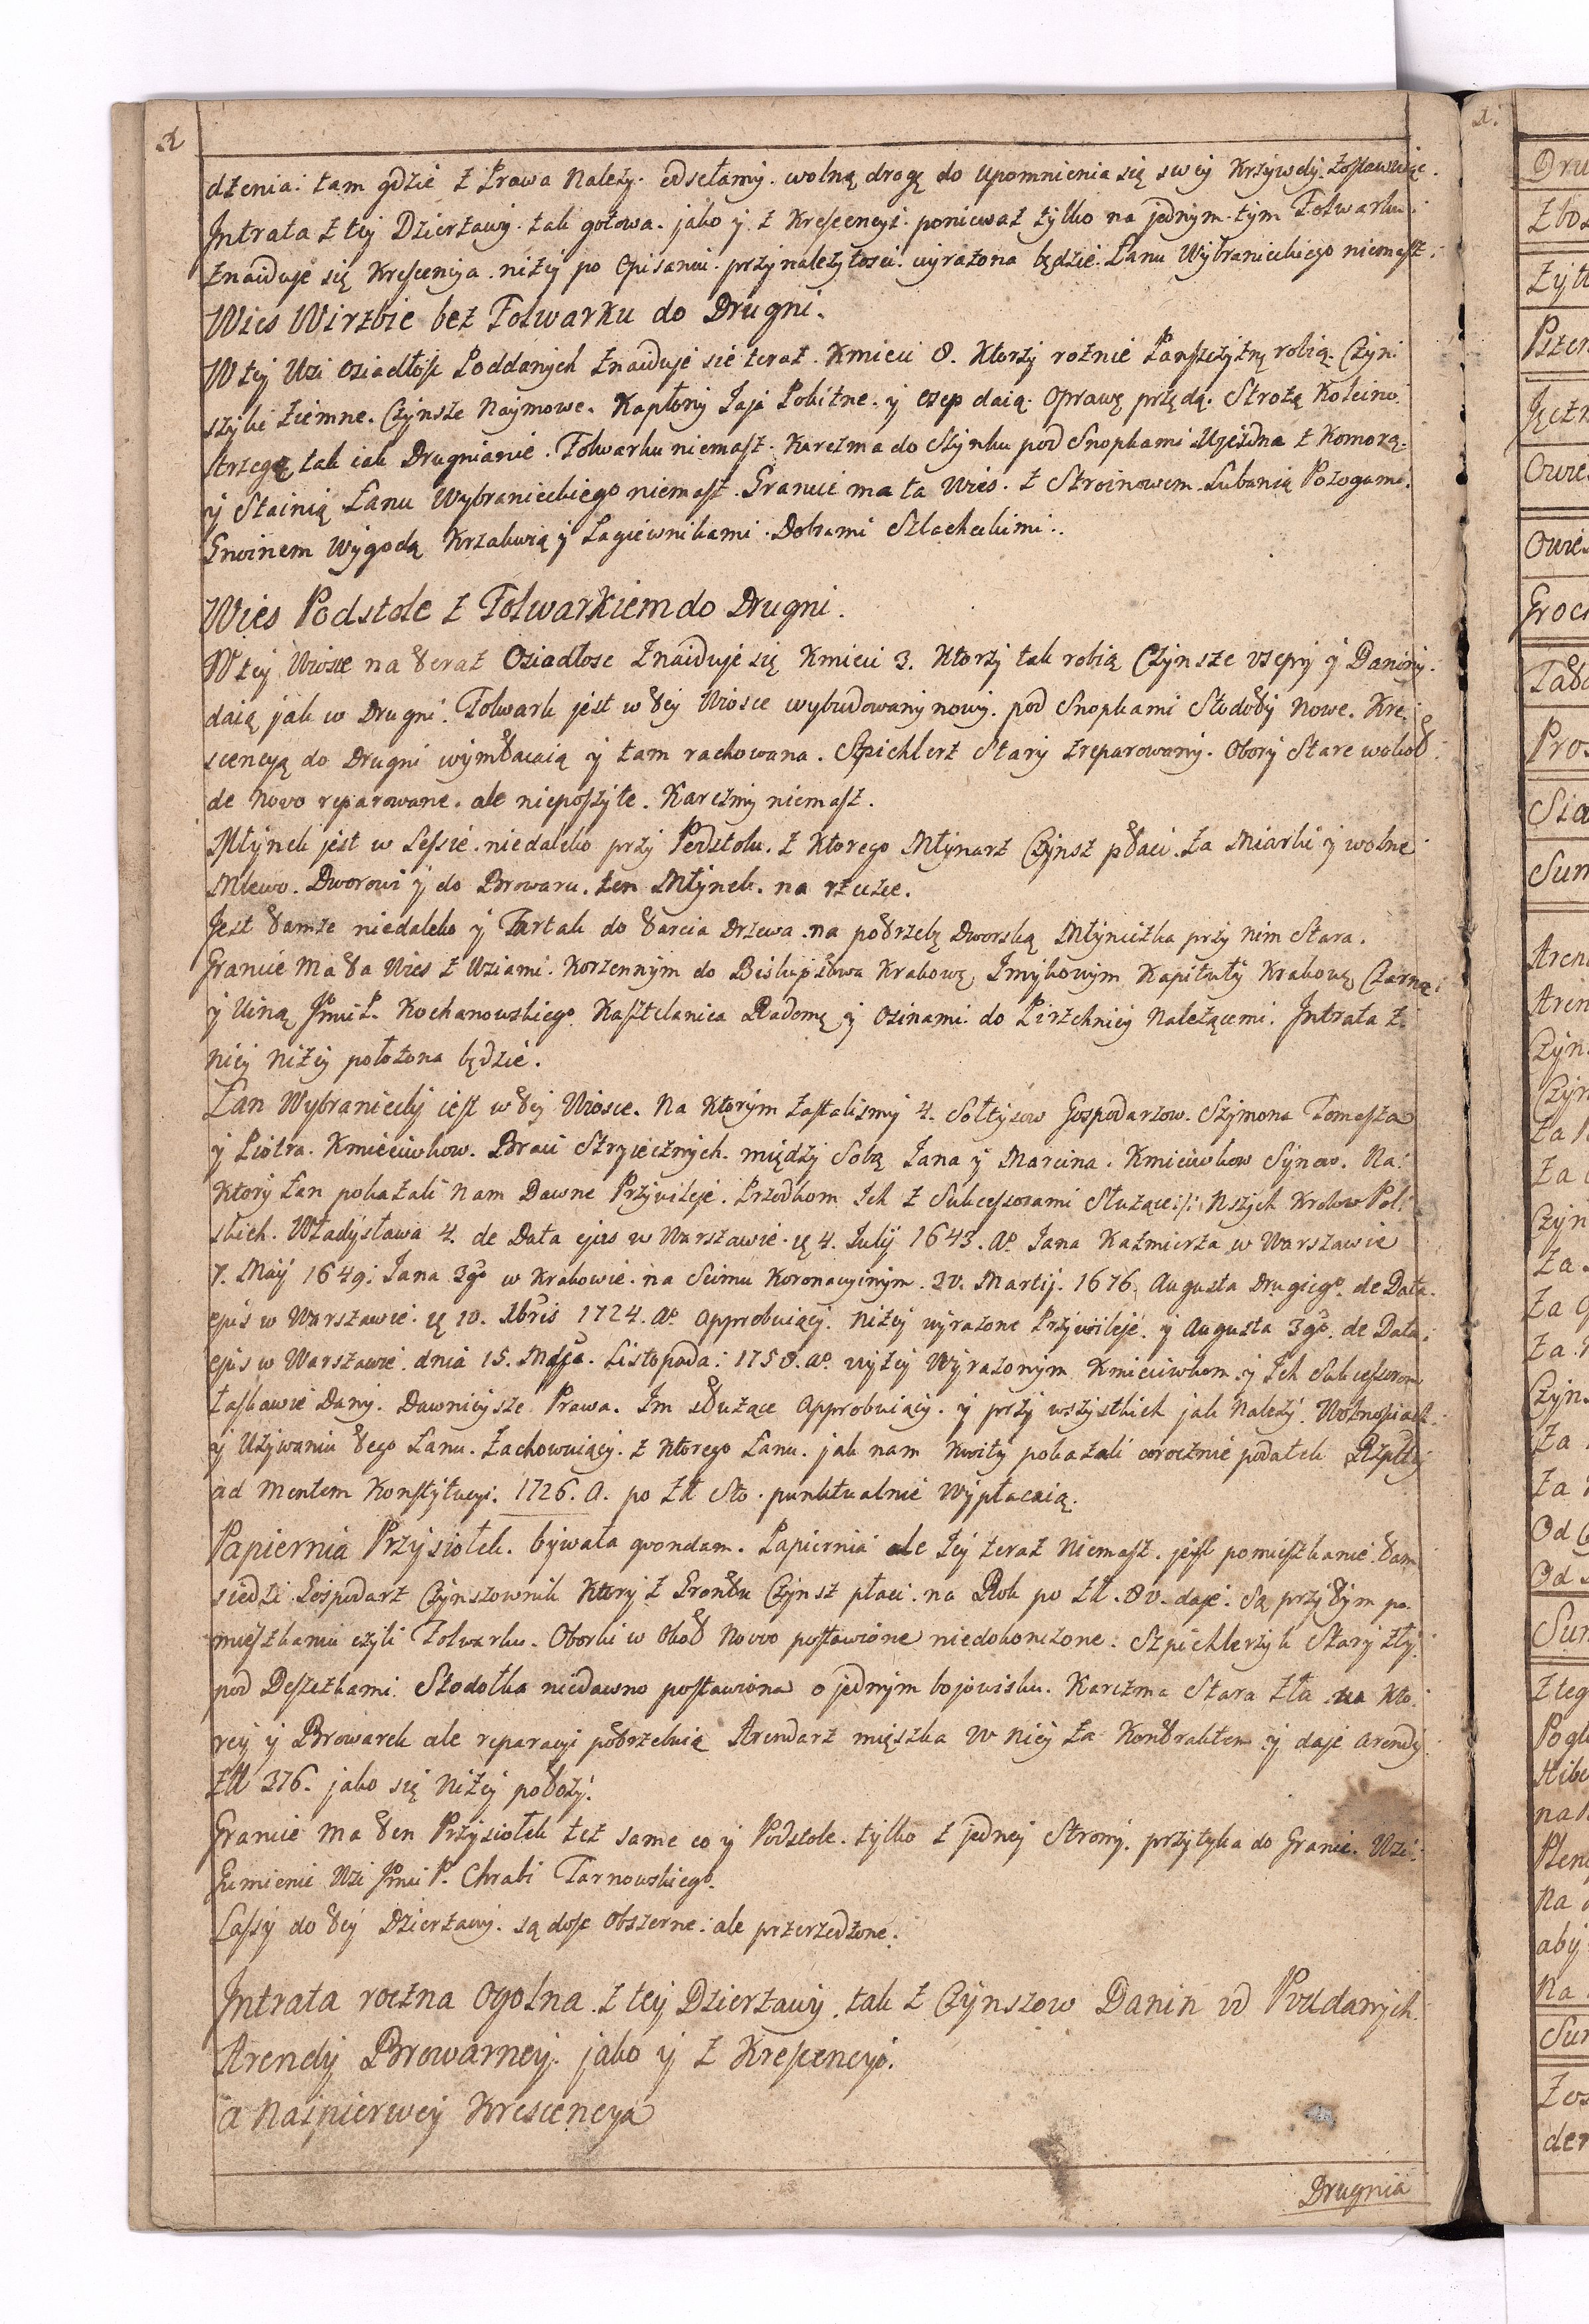 dzenia. tam gdzie z Prawa Nalezy. odsełamy. wolną drogę do upomnienia się swey Krzywdy. zostawuiąc.
Jntrata z tey Dzierzawy. tak gotowa. jako y z Krescencyi. poniewaz tylko na jednym. tym Folwarku.
znaiduje się Krescencya. nizey po Opisaniu. przynalezytosci. wyrazona będzie. Łanu Wybranieckiego niemasz.
Wies Wirzbie bez Folwarku do Drugni.
W tey Wsi osiadłosc Poddanych znaiduje sie teraz. Kmieci 8. Ktorzy roznie Panszczyznę robią. Czyn:
szyki ziemne. Czynsze Naymowe. Kapłony Jaja Lobizne. y Osep daią. Oprawę przędą. Strozą Koleino.
strzegą, tak iak Drugnianie. Folwarku niemasz. Karczma do Szynku pod Snopkami Ujezdna z Komorą.
y Stainią Łanu Wybranieckiego niemasz. Granice ma ta Wies. z Stroinowem. Lubanią Pozogami.
Gnoinem Wygodą Krzakwią y Łagiewnikami. Dobrami Szlacheckimi.
Wies Podstole z Folwarkiem do Drugni.
W tey Wiosce na teraz Osiadłosc znaiduje się Kmieci 3. Ktorzy tak robią Czynsze osepy y Daniny.
daią jak w Drugni. Folwark jest w tey Wiosce wybudowany nowy. pod Snopkami Stodoły Nowe. Kre:
scencyą do Drugni wymłacaią y tam rachowana. Szpichlerz Stary zreparowany. Obory Stare wokoł
de novo reparowane. ale nieposzyte. Karczmy niemasz.
Młynek jest w Lessie. niedaleko przy Podstolu. z Ktorego Młynarz Czynsz płaci. za Miarki y wolne
Mlewo. Dworowi y do Browaru. ten Młynek. na rzecze.
Jest tamze niedaleko y Tartak do tarcia Drzewa. na potrzebę Dworską Młyniczka przy nim Stara.
Granice Ma ta Wies z Wsiami. Korzennym do Biskupstwa Krakowę, Zmykowym Kapituły Krakowę, Czarną:
y Winą Jmci P. Kochanowskiego Kasztelanica Radomę y Osinami do Pirzchnicy Nalezącemi. Jntrata z.
niey nizey połozona będzie.
Łan Wybraniecky iest w tey Wiosce. Na Ktorym zastalismy 4. Sołtysow Gospodarzow. Szymona Tomasza
y Piotra. Kmieciwkow. Braci Stryiecznych. między Sobą Jana y Marcina. Kmieciwkow Synow. Na:
Ktory Łan pokazali Nam Dawne Przywileje. Przodkom Jch z Sukcessorami Słuzące :/: Nszych Krolow Pol:
skich. Władysława 4. de Data ejus w Warszawie. 4. Julij 1643. Ao. Jana Kazmierza w Warszawie
7. Maij 1649. Jana 3go w Krakowie. na Seimu Koronacyinym. 30. Martij. 1676. Augusta Drugiego. de Data.
ejus w Warszawie. 10. Xbris 1724. Ao. Approbuiący. nizey wyrazone Przywileje. y Augusta 3go. de Data:
ejus w Warszawie. dnia 15. Msca. Listopada: 1758. ao. wyzey Wyrazonym Kmieciwkom. y Jch Sukcessorom
Łaskawie Dany. Dawnieysze Prawa. Im słuzące Approbuiący. y przy wszystkich jak Nalezy. Wolnosciach.
y Uzywaniu tego Łanu. Zachowuiący. z Ktorego Łanu. jak nam Kwity pokazali corocznie podatek Rzpltey
ad Mentem Konstytucyi. 1726. A. po Zł Sto. punktualnie Wypłacaią.
Papiernia Przysiołek. bywała quondam. Papiernia ale Jey teraz Niemasz. jest pomieszkanie tam
siedzi Gospodarz Czynszownik Ktory z Grontu Czynsz płaci. na Rok po Zł. 80. daje. Są przytym po:
mieszkaniu czyli Folwarku. Oborki w Okoł Nowo postawione niedokonczone. Szpichlerzyk Stary zły.
pod Deszczkami. Stodołka niedawno postawiona o jednym bojowisku. Karczma Stara zła na Kto:
rey y Browarek ale reparacyi potrzebuią Arendarz mięszka w Niey za Kontraktem y daje Arendy.
Zł 376. jako się Nizey połozy.
Granice Ma ten Przysiołek tez same co y Podstole. tylko z jednej Strony. przytyka do Granic. Wsi:
Gumienic Wsi Jmci P. Chrabi Tarnowskiego.
Lassy do tey Dzierzawy. są dosc Obszerne. ale przerzedzone.
Jntrata roczna Ogolna. z tey Dzierzawy. tak z Czynszow Danin od Poddanych.
Arendy Browarney. jako y z Krescencyi.
a Naipierwey Krescencya
Drugnia